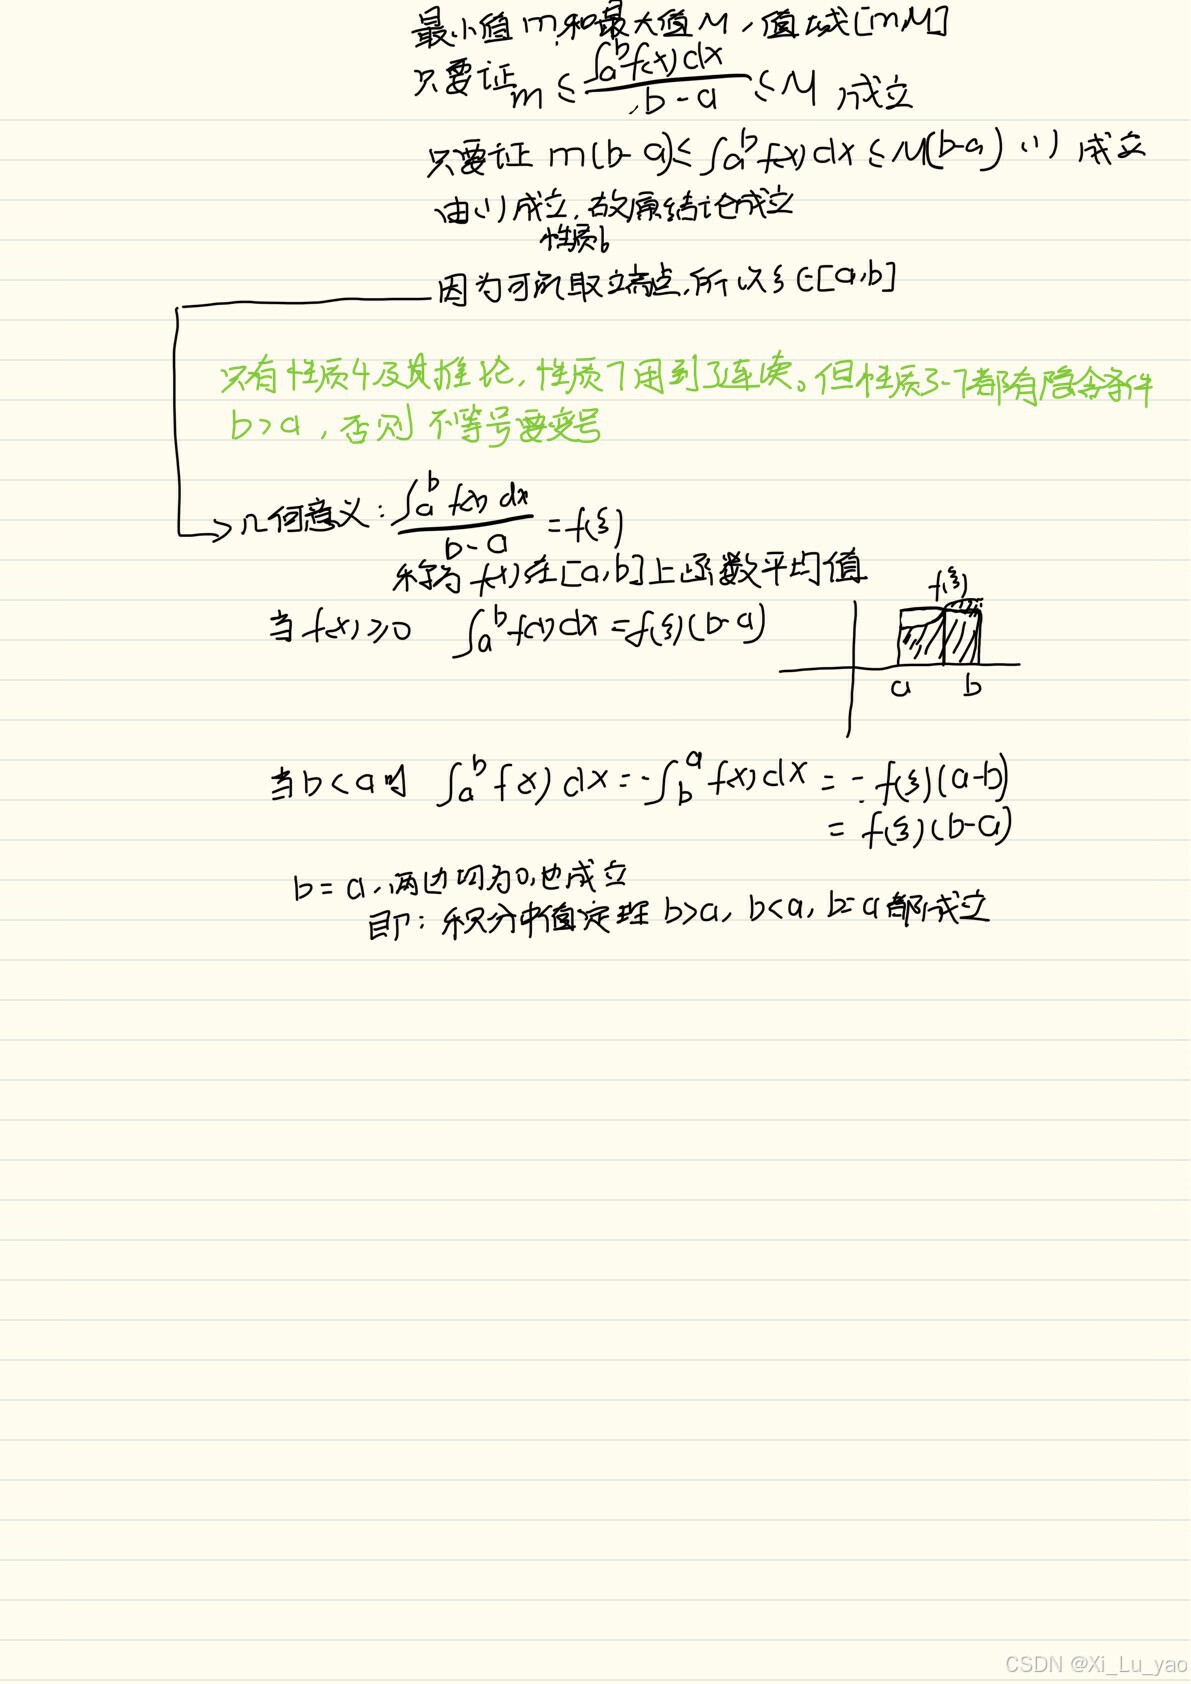 最小值m和最大值M，值域[m,M]
只要证 m ≤ \frac{∫_a^b f(x)dx}{b-a} ≤ M 成立
只要证 m(b-a) ≤ ∫_a^b f(x)dx ≤ M(b-a) (1) 成立
由(1)成立,故原结论成立
性质6
因为可能取立端点,所以ξ∈[a,b]
只有性质4及其推论,性质7用到了连续。但性质3-7都有隐含条件
b>a,否则 不等号要变号
几何意义: \frac{∫_a^b f(x)dx}{b-a} = f(ξ)
称为 f(x)在[a,b]上函数平均值
f(ξ)
当 f(x)≥0 ∫_a^b f(x)dx = f(ξ)(b-a)
a b
当b<a时 ∫_a^b f(x)dx = -∫_b^a f(x)dx = -f(ξ)(a-b)
= f(ξ)(b-a)
b=a,两边均为0,也成立
即: 积分中值定理 b>a, b<a, b=a都成立
CSDN @Xi_Lu_yao